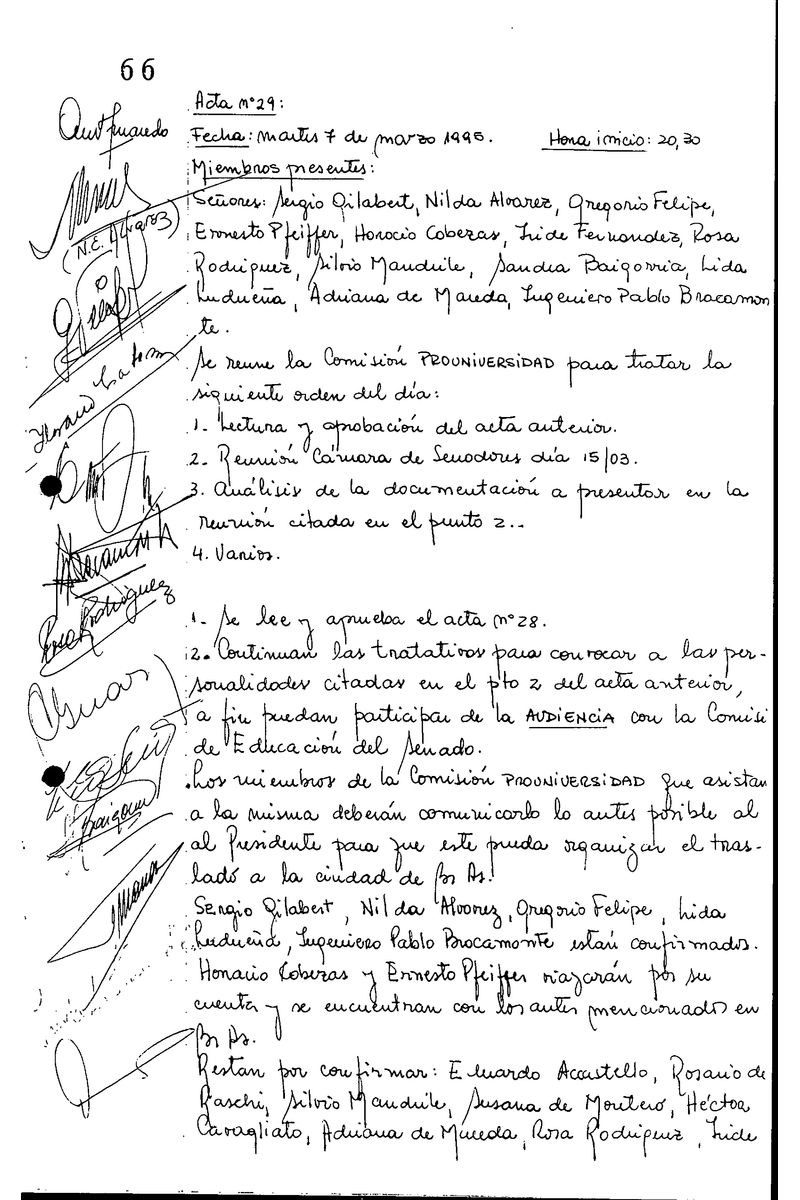 66
Acta nº29:
Fecha: martes 7 de marzo 1995. Hora inicio: 20,30
Miembros presentes:
Señores: Sergio Gilabert, Nilda Alvarez, Gregorio Felipe,
Ernesto Pfeiffer, Horacio Cabezas, Iride Fernandez, Rosa
Rodriguez, Silvio Mandrile, Sandra Baigorria, Lida
Ludueña, Adriana de Maneda, Ingeniero Pablo Bracamon
te.
Se reune la Comisión PROUNIVERSIDAD para tratar la
siguiente orden del día:
1. Lectura y aprobación del acta anterior.
2. Reunión Cámara de Senadores día 15/03.
3. Análisis de la documentación a presentar en la
reunión citada en el punto 2..
4. Varios.
1. Se lee y aprueba el acta nº28.
2. Continuan las tratativas para convocar a las per-
sonalidades citadas en el pto 2 del acta anterior,
a fin puedan participar de la AUDIENCIA con la Comisi
de Educación del Senado.
.Los miembros de la Comisión PROUNIVERSIDAD que asistan
a la misma deberán comunicarlo lo antes posible al
al Presidente para que este pueda organizar el tras-
lado a la ciudad de Bs As.
Sergio Gilabert, Nilda Alvarez, Gregorio Felipe, Lida
Ludueña, Ingeniero Pablo Bracamonte están confirmados.
Horacio Cabezas y Ernesto Pfeiffer viajarán por su
cuenta y se encuentran con los antes mencionados en
Bs As.
Restan por confirmar: Eduardo Accastello, Rosario de
Raschi, Silvio Mandrile, Susana de Montero, Héctor
Cavagliato, Adriana de Maneda, Rosa Rodriguez, Iride
(N.E. Alvarez)
Horacio Cabezas
Rosa Rodriguez